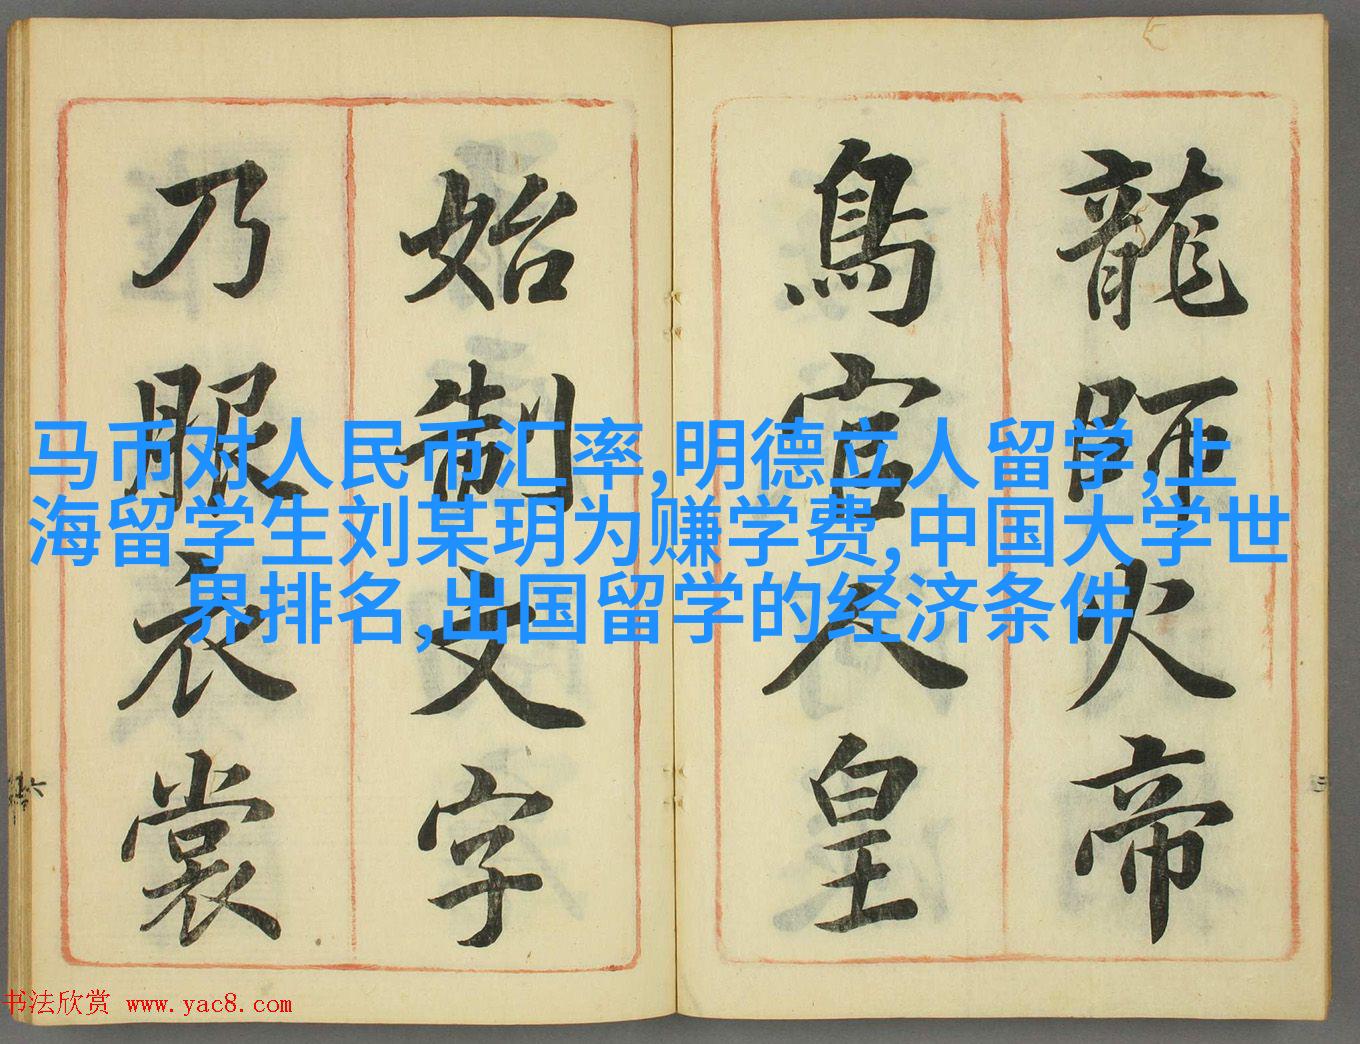 龍師火帝
鳥官人皇
始制文字
乃服衣裳
马币对人民币汇率,明德立人留学,上
海留学生刘某玥为赚学费,中国大学世
界排名,出国留学的经济条件
书法欣赏 www.yac8.com